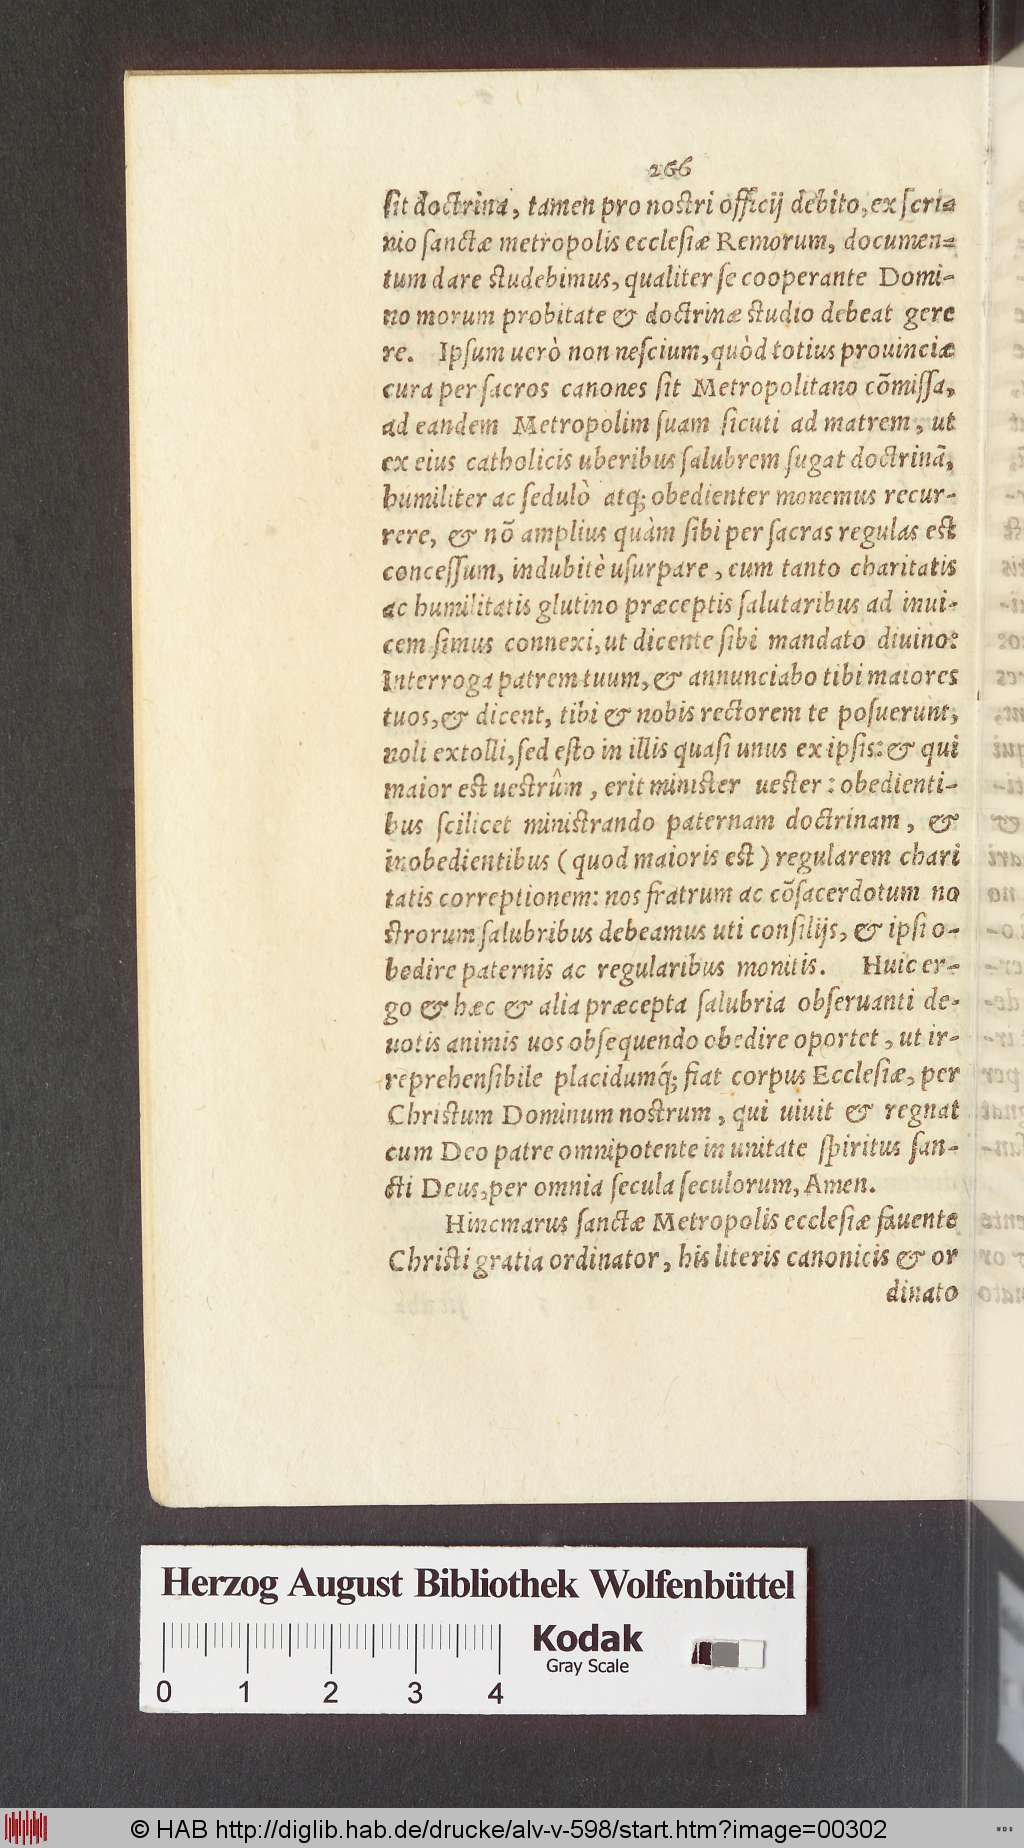 266
ſit doctrina, tamen pro noſtri officij debito, ex ſcri=
nio ſanctæ metropolis eccleſiæ Remorum, documen=
tum dare ſtudebimus, qualiter ſe cooperante Domi-
no morum probitate & doctrinæ ſtudio debeat gere
re. Ipſum uerò non neſcium, quòd totius prouinciæ
cura per ſacros canones ſit Metropolitano cõmiſſa,
ad eandem Metropolim ſuam ſicuti ad matrem, ut
ex eius catholicis uberibus ſalubrem ſugat doctrinã,
humiliter ac ſedulò atq; obedienter monemus recur-
rere, & nõ amplius quàm ſibi per ſacras regulas eſt
conceſſum, indubitè uſurpare, cum tanto charitatis
ac humilitatis glutino præceptis ſalutaribus ad inui-
cem ſimus connexi, ut dicente ſibi mandato diuino:
Interroga patrem tuum, & annunciabo tibi maiores
tuos, & dicent, tibi & nobis rectorem te poſuerunt,
noli extolli, ſed eſto in illis quaſi unus ex ipſis: & qui
maior eſt ueſtrûm, erit miniſter ueſter: obedienti-
bus ſcilicet miniſtrando paternam doctrinam, &
inobedientibus (quod maioris eſt) regularem chari
tatis correptionem: nos fratrum ac cõſacerdotum no
ſtrorum ſalubribus debeamus uti conſilijs, & ipſi o-
bedire paternis ac regularibus monitis. Huic er-
go & hæc & alia præcepta ſalubria obſeruanti de-
uotis animis uos obſequendo obedire oportet, ut ir-
reprehenſibile placidumq́; fiat corpus Eccleſiæ, per
Chriſtum Dominum noſtrum, qui uiuit & regnat
cum Deo patre omnipotente in unitate ſpiritus ſan-
cti Deus, per omnia ſecula ſeculorum, Amen.
Hincmarus ſanctæ Metropolis eccleſiæ fauente
Chriſti gratia ordinator, his literis canonicis & or
dinato
Herzog August Bibliothek Wolfenbüttel
Kodak
Gray Scale
0 1 2 3 4
© HAB http://diglib.hab.de/drucke/alv-v-598/start.htm?image=00302